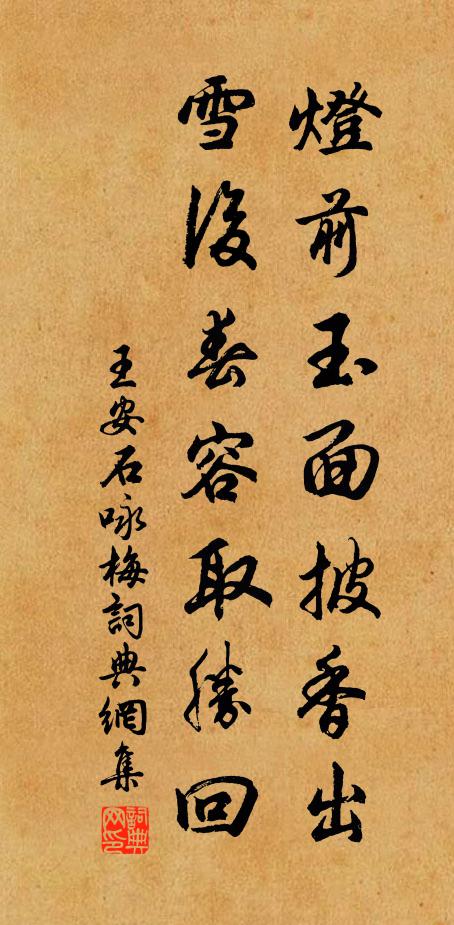 燈前玉面披香出
雪後春容取勝回
王安石咏梅詞典網集
詞典网印